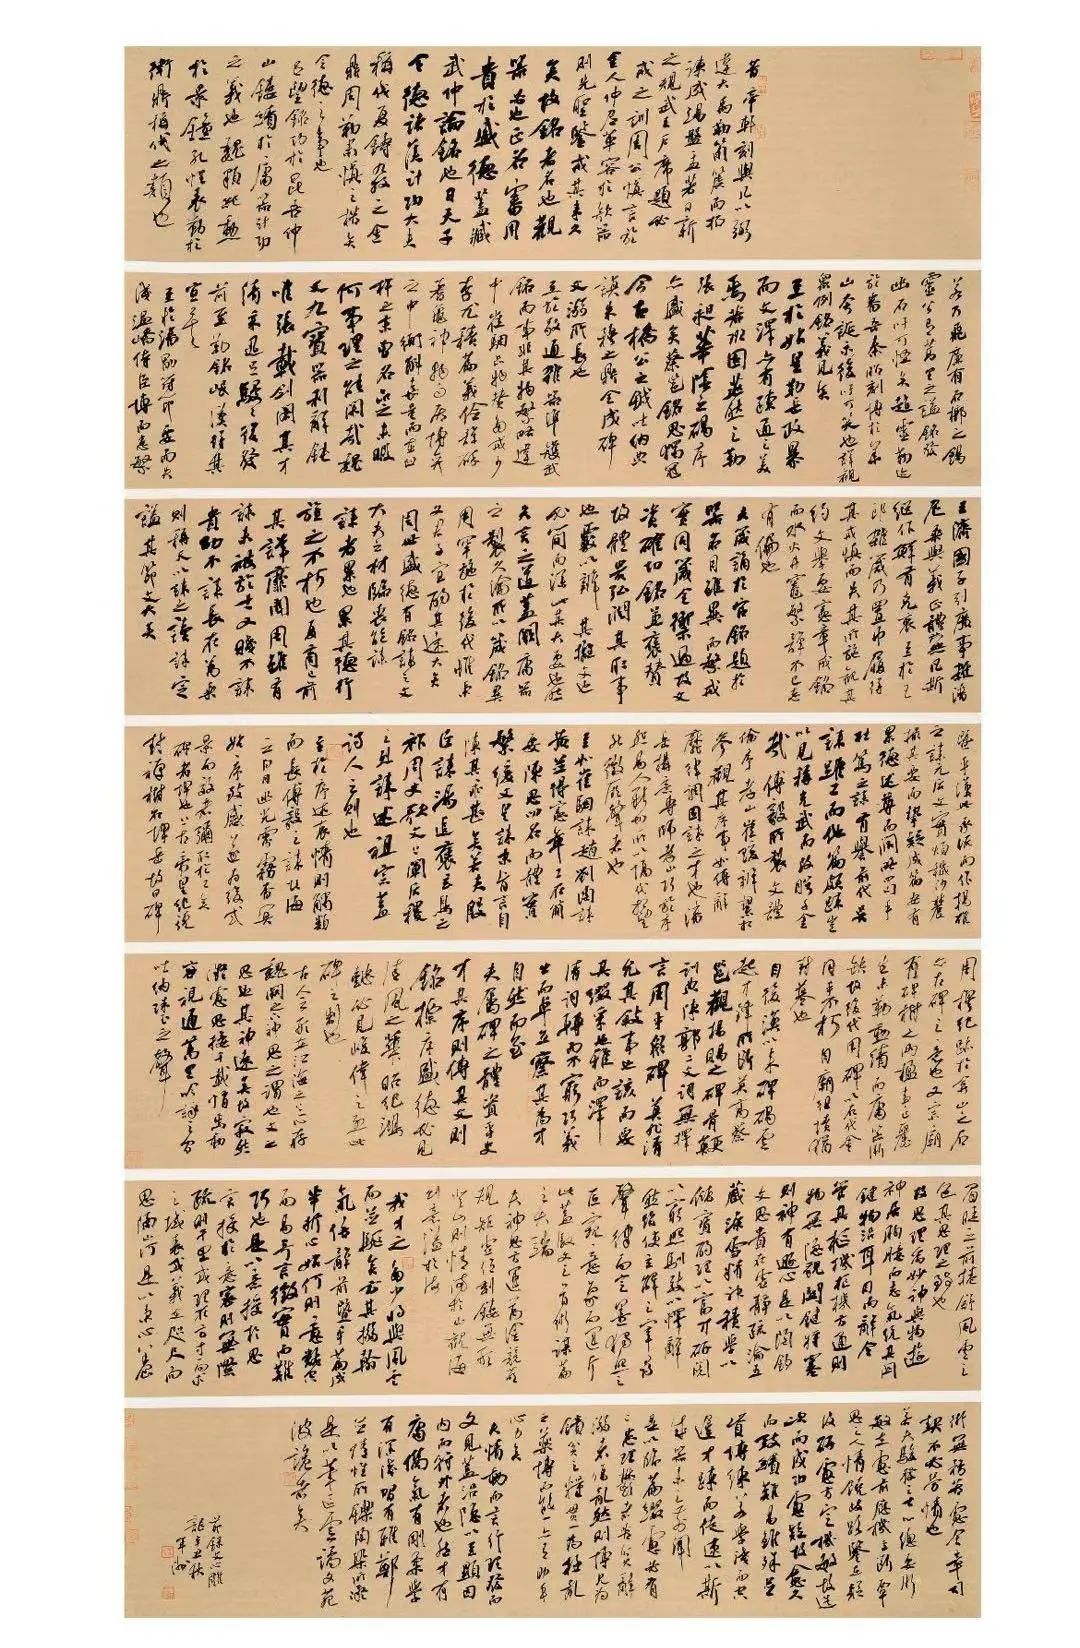 昔帝軒刻輿几以弼
違大禹勒筍簴而招
諫成湯盤盂著日新
之規武王户席題必
戒之訓周公慎言於
金人仲尼革容於欹器
則先聖鑒戒其來久
矣故銘者名也觀
器必也正名審用
貴於盛德蓋臧
武仲論銘也曰天子
令德諸侯計功大夫
稱伐夏鑄九牧之金
鼎周勒肅慎之楛矢
令德之事也
呂望銘功於昆吾仲
山鏤績於庸器計功
之義也魏顆紀勳
於景鐘孔悝表勤於
衛鼎稱伐之類也
若乃飛廉有石槨之錫
靈公有蒿里之謚銘發
幽石吁可怪矣趙靈勒迹
於番吾秦昭刻博於華
山夸誕示後吁可笑也詳觀
衆例銘義見矣
至於始皇勒岳政暴
而文澤亦有疏通之美
焉若班固燕然之勒
張昶華陰之碣序
亦盛矣蔡邕銘思獨冠
今古橋公之鉞吐納典
謨朱穆之鼎全成碑
文溺所長也
至於敬通雜器準矱武
銘而事非其物繁略違
中崔駰品物讚多戒少
李尤積篇義儉辭碎
蓍龜神物而居博弈
之中衡斛嘉量而在臼
杵之末曾名品之未暇
何事理之能閑哉魏
文九寶器利辭鈍
唯張載劍閣其才
清采迅足駸駸後發
前至勒銘岷漢得其
宜矣
至於潘勗符節要而失
淺温嶠侍臣博而患繁
王濟國子引廣事雜潘
尼乘輿義正體蕪凡斯
繼作鮮有克衷至於王
朗雜箴乃置巾履得
其戒慎而失其所施觀其
約文舉要憲章戒銘
而水火井竈繁辭不已志
有偏也
夫箴誦於官銘題於
器名目雖異而警戒
實同箴全禦過故文
資確切銘兼褒讚
故體貴弘潤其取事
也覈以辨其摛文也
必簡而深此其大要也然
矢言之道蓋闕庸器
之製久淪所以箴銘異
用罕施於後代惟秉
文君子宜酌其遠大矣
周世盛德有銘誄之文
大夫之材臨喪能誄
誄者累也累其德行
旌之不朽也夏商已前
其詳靡聞周雖有
誄未被於士又賤不誄
貴幼不誄長在萬乘
則稱天以誄之讀誄定
謚其節文大矣
暨乎漢世承流而作揚雄
之誄元后文實煩穢沙麓
撮其要而摯疑成篇安有
累德述尊而闊略四句乎
杜篤之誄有譽前代吳
誄雖工而他篇頗疏豈
以見稱光武而改盼千金
哉傅毅所製文體
倫序孝山崔瑗辨絜相
參觀其序事如傳辭
靡律調固誄之才也潘
岳構意專師孝山巧於序
悲易入新切所以隔代相望
能徵厥聲者也
至如崔駰誄趙劉陶誄
黄並得憲章工在簡
要陳思叨名而體實
繁緩文皇誄末旨言自
陳其乖甚矣若夫殷
臣誄湯追褒玄鳥之
祚周史歌文上闡后稷
之烈誄述祖宗蓋
詩人之則也
至於序述哀情則觸類
而長傅毅之誄北海
云白日幽光雰霧杳冥
始序致感遂為後式
景而效者彌取於工矣
碑者埤也上古帝皇紀號
封禪樹石埤岳故曰碑
周穆紀跡於弇山之石
亦古碑之意也又宗廟
有碑樹之兩楹事止麗
牲未勒勳績而庸器漸
缺故後代用碑以石代金
同乎不朽自廟徂墳猶
封墓也
自後漢以來碑碣雲
起才鋒所斷莫高蔡
邕觀楊賜之碑骨鯁
訓典陳郭二文詞無擇
言周乎衆碑莫非清
允其敘事也該而要
其綴采也雅而澤
清詞轉而不窮巧義
出而卓立察其為才
自然而至
夫屬碑之體資乎史
才其序則傳其文則
銘標序盛德必見
清風之華昭紀鴻
懿必見峻偉之烈此
碑之制也
古人云形在江海之上心存
魏闕之下神思之謂也文之
思也其神遠矣故寂然
凝慮思接千載悄焉動
容視通萬里吟詠之間
吐納珠玉之聲
眉睫之前捲舒風雲之
色其思理之致乎
故思理為妙神與物遊
神居胸臆而志氣統其關
鍵物沿耳目而辭令
管其樞機樞機方通則
物無隱貌關鍵將塞
則神有遯心是以陶鈞
文思貴在虚靜疏瀹五
藏澡雪精神積學以
儲寶酌理以富才研閱
以窮照馴致以懌辭
然後使玄解之宰尋
聲律而定墨獨照之
匠窺意象而運斤
此蓋馭文之首術謀篇
之大端
夫神思方運萬塗競萌
規矩虚位刻鏤無形
登山則情滿於山觀海
則意溢於海
我才之多少將與風雲
而並驅矣方其搦翰
氣倍辭前暨乎篇成
半折心始何則意翻空
而易奇言徵實而難
巧也是以意授於思
言授於意密則無際
疏則千里或理在方寸而求
之域表或義在咫尺而
思隔山河是以秉心養
術無務苦慮含章司
契不必勞情也
若夫駿發之士心總要術
敏在慮前應機立斷覃
思之人情饒歧路鑒在疑
後研慮方定機敏故造
次而成功慮疑故愈久
而致績難易雖殊並
資博練若學淺而空
遲才疏而徒速以斯
成器未之前聞
是以臨篇綴慮必有
二患理鬱者苦貧辭
溺者傷亂然則博見為
饋貧之糧貫一為拯亂
之藥博而能一亦有助乎
心力矣
夫情動而言形理發而
文見蓋沿隱以至顯因
内而符外者也然才有
庸儁氣有剛柔學
有淺深習有雅鄭
並情性所鑠陶染所凝
是以筆區雲譎文苑
波詭者矣
節錄文心雕
龍辛丑秋
軍